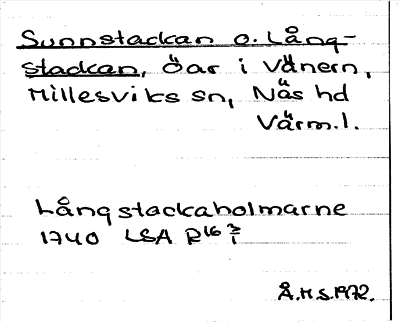 Sunnstackan o. Lång-
stackan, öar i Vänern,
Millesviks sn, Näs hd
Värm. l.
Långstackaholmarne
1740 LSA R16
Å.H.S. 1972.